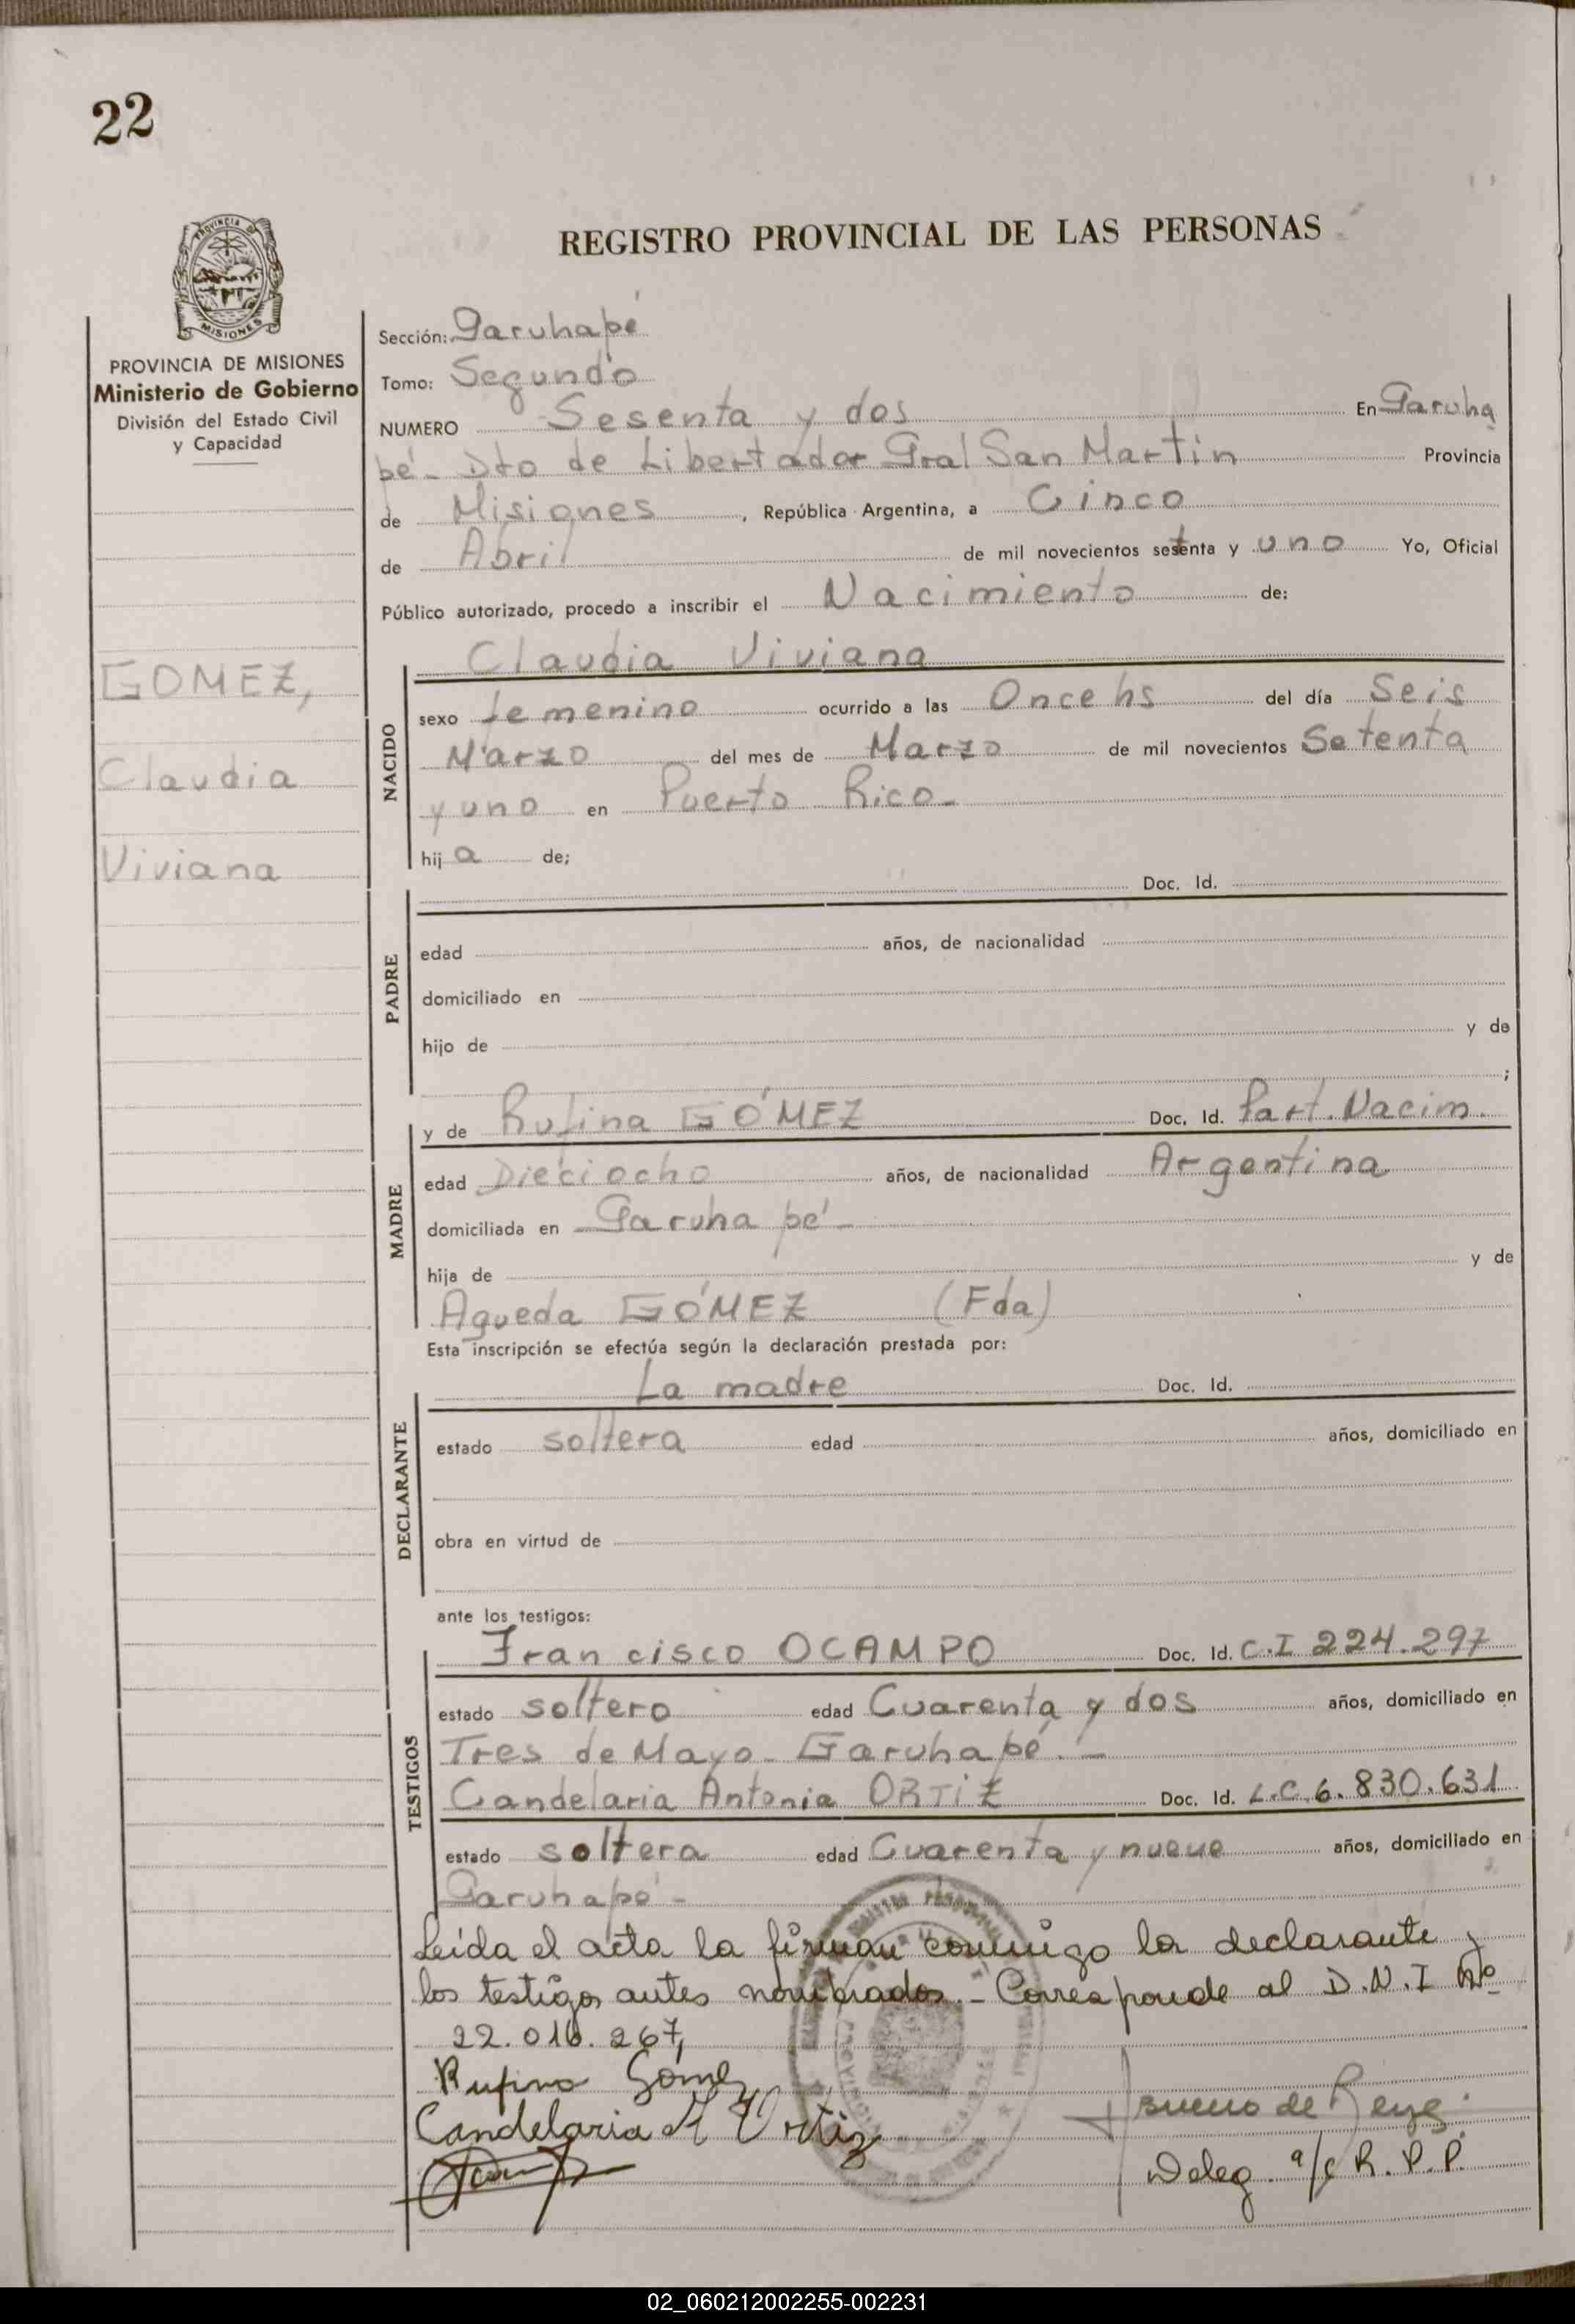 22
REGISTRO PROVINCIAL DE LAS PERSONAS
PROVINCIA DE MISIONES
Ministerio de Gobierno
División del Estado Civil
y Capacidad
GOMEZ,
Claudia
Viviana
Sección: Garuhapé
Tomo: Segundo
NUMERO Sesenta y dos En Garuha
pé - Dto de Libertador Gral San Martín Provincia
de Misiones, República Argentina, a Cinco
de Abril de mil novecientos setenta y uno Yo, Oficial
Público autorizado, procedo a inscribir el Nacimiento de:
NACIDO
Claudia Viviana
sexo femenino ocurrido a las Once hs del día Seis
Marzo del mes de Marzo de mil novecientos Setenta
y uno en Puerto Rico -
hij a de;
PADRE
Doc. Id.
edad años, de nacionalidad
domiciliado en
hijo de y de
;
MADRE
y de Rufina GÓMEZ Doc. Id. Part. Nacim.
edad Dieciocho años, de nacionalidad Argentina
domiciliada en Garuhapé -
hija de y de
Agueda GÓMEZ (Fda)
Esta inscripción se efectúa según la declaración prestada por:
DECLARANTE
La madre Doc. Id.
estado soltera edad años, domiciliado en
obra en virtud de
ante los testigos:
TESTIGOS
Francisco OCAMPO Doc. Id. C.I 224.297
estado soltero edad Cuarenta y dos años, domiciliado en
Tres de Mayo - Garuhapé. -
Candelaria Antonia ORTIZ Doc. Id. L.C. 6.830.631
estado soltera edad Cuarenta y nueve años, domiciliado en
Garuhapé -
Leida el acta la firman conmigo la declarante y
los testigos antes nombrados. - Corresponde al D.N.I Nº
22.016.267,
Rufina Gómez
Candelaria A Ortiz
de Reyes
Deleg. a/c R.P.P.
02_060212002255-002231